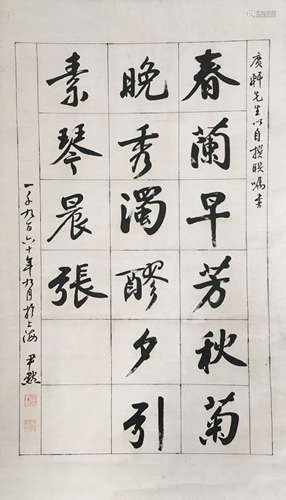 广轩先生以自撰联嘱书
春蘭早芳秋菊
晚秀濁醪夕引
素琴晨張
一千九百六十年九月於上海 尹默